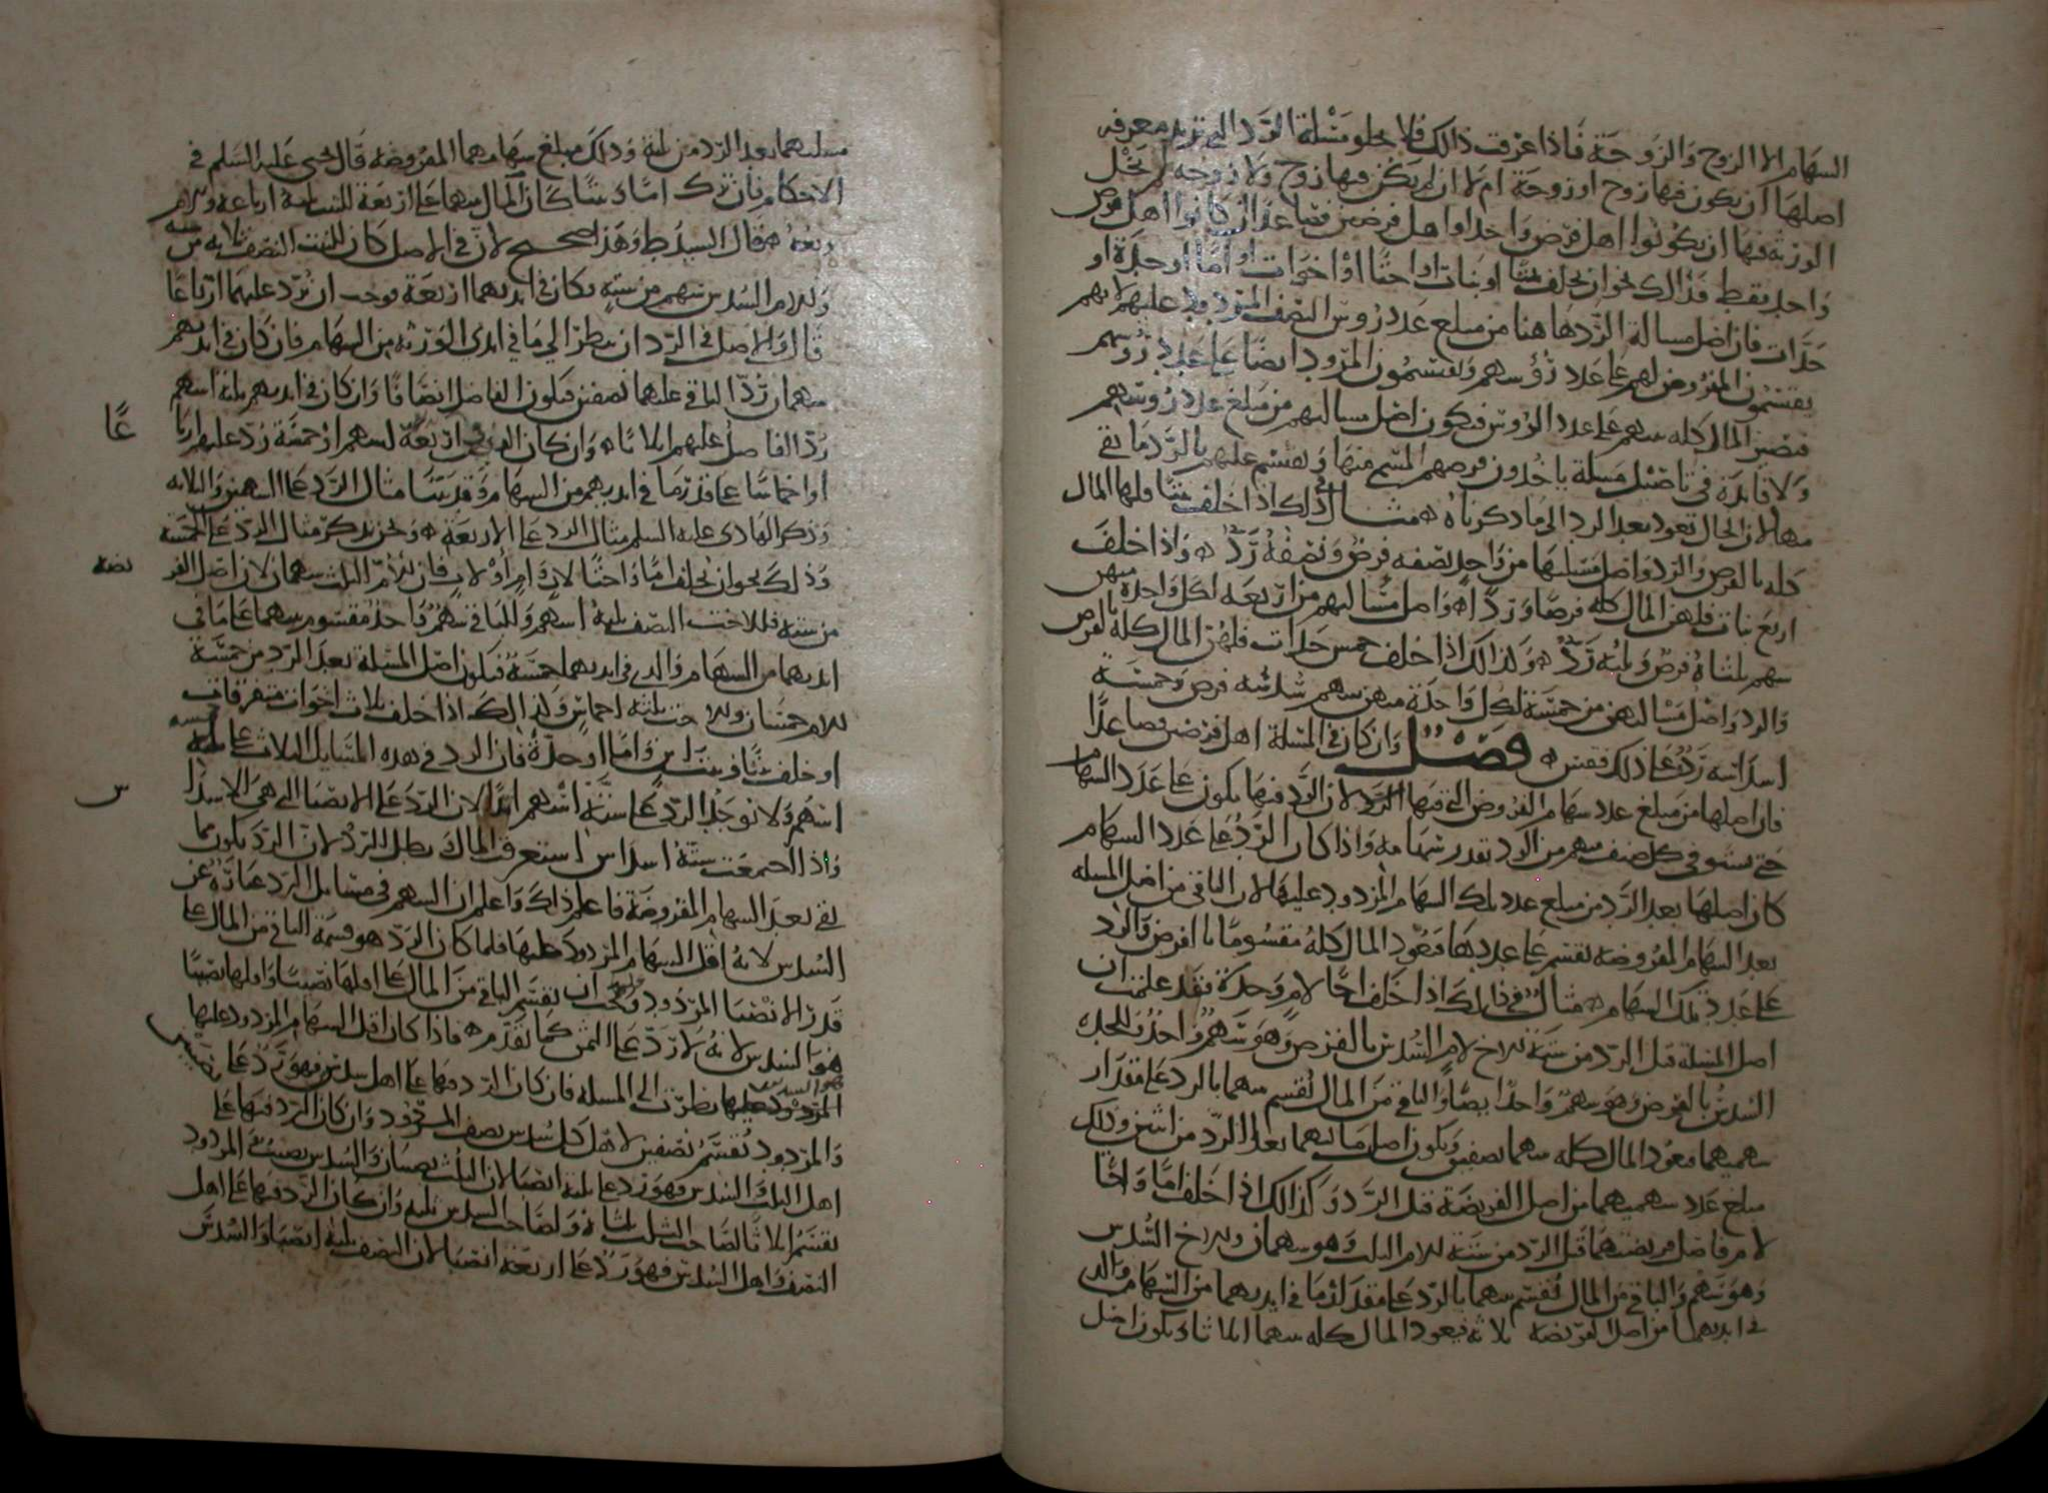 السهام الا الزوج والزوجة فاذا عرفت ذالك فلا يخلو مسلة الرد التي تريد معرفه
اصلها ان يكون فيها زوج او زوجة ام لا ان لم يكن فيها زوج ولا زوجه لم يخل
الورثة فيها ان يكونوا اهل فرض واحد او اهل فرضين فصاعدا فان كانوا اهل فرض
واحد فقط فذالك نحو ان يخلف بنتا او بنات او اختا او اخوات او اما او جدة او
جدات فان اصل مسالة الرد هاهنا من مبلغ عدد روس الصنف المردود عليهم لانهم
يقتسمون المفروض لهم على عدد رؤسهم ويقتسمون المردود ايضا على عدد رؤسهم
فيصير المال كله بينهم على عدد الروس فيكون اصل مسالتهم من مبلغ عدد روسهم
ولا فايدة في تاصيل مسلة ياخذون فرضهم المسمى منها ويقسم عليهم بالرد ما بقي
منها لان الحال تعود بعد الرد الى ما ذكرناه مثال ذلك اذا خلف بنتا فلها المال
كله بالفرض والرد واصل مسلتها من واحد نصفه فرض ونصفه رد واذا خلف
اربع بنات فلهن المال كله فرضا وردا واصل مسالتهم من اربعه لكل واحدة منهن
سهم ثلثاه فرض وثلثه رد وكذالك اذا خلف خمس جدات فلهن المال كله بالفرض
والرد واصل مسالتهن من خمسة لكل واحدة منهن سهم سدسه فرض وخمسة
اسداسه رد على ذلك فقس فصل وان كان في المسلة اهل فرضين فصاعدا
فان اصلها من مبلغ عدد سهام الفروض التي فيها الرد لان الرد فيها يكون على عدد السهام
حتى يستوفي كل صنف منهم من الرد بقدر سهامه واذا كان الرد على عدد السهام
كان اصلها بعد الرد من مبلغ عدد تلك السهام المردود عليها لان الباقي من اصل المسله
بعد السهام المفروضه يقسم على عددها فيعود المال كله مقسوما بالفرض والرد
على عدد تلك السهام مثال في ذلك اذا خلف اخا لام وجدة فقد علمت ان
اصل المسلة قبل الرد من ستة للاخ لام السدس بالفرض وهو سهم واحد وللجده
السدس بالفرض وهو سهم واحد ايضا والباقي من المال يقسم بينهما بالرد على مقدار
سهميهما فيعود المال كله بينهما نصفين ويكون اصل مسالتهما بعد الرد من اثنين وذلك
مبلغ عدد سهميهما من اصل الفريضة قبل الرد وكذالك اذا خلف اما واخا
لام فاصل فريضتهما قبل الرد من ستة للام الثلث وهو سهمان وللاخ السدس
وهو سهم والباقي من المال يقسم بينهما بالرد على مقدار ما في ايديهما من السهام والذي
في ايديهما من اصل الفريضة ثلاثه فيعود المال كله بينهما اثلاثا ويكون اصل
مسلتهما بعد الرد من ثلثة وذلك مبلغ سهامهما المفروضه قال يحيى عليه السلم في
الاحكام فان ترك اما وبنتا كان المال بينهما على اربعة للبنت ثلثة ارباعه وللام
ربعه قال السيد ط وهذا صحيح لان في الاصل كان للبنت النصف ثلاثه من ستة
وللام السدس سهم من سته فكان في ايديهما اربعة فوجب ان نرد عليهما ارباعا
قال والاصل في الرد ان ينظر الى ما في ايدي الورثه من السهام فان كان في ايديهم
سهمان رد الباقي عليهما نصفين فيكون الفاضل انصافا وان كان في ايديهم ثلثه اسهم
رد الفاضل عليهم اثلاثا وان كان اربعة اسهم او خمسة رد عليهم اربا عا
او اخماسا على قدر ما في ايديهم من السهام وقد بينا مثال الرد على السهمين والثلاثه
وذكر الهادي عليه السلم مثال الرد على الاربعة ونحن نذكر مثال الرد على الخمسة
وذلك نحو ان يخلف اما واختا لاب وام او لاب فان للام الثلث سهمان لان اصل الفر يضه
من سته وللاخت النصف ثلثة اسهم والباقي سهم واحد مقسوم بينهما على ما في
ايديهما من السهام والذي في ايديهما خمسة فيكون اصل المسلة بعد الرد من خمسة
للام خمسان وللاخت ثلثه اخماس وكذالك اذا خلف ثلاث اخوات متفرقات
او خلف بنتا وبنت ابن واما او جدة فان الرد في هذه المسايل الثلاث على خمسة
اسهم ولا توجد الرد على ستة اسهم ابدا لان الرد على الانصبا التي هي الاسدا س
واذا اجتمعت ستة اسداس استغرقت المال وبطل الرد لان الرد يكون مما
بقي بعد السهام المفروضة فاعلم ذلك واعلم ان السهم في مسايل الرد عبارة عن
السدس لانه اقل السهام المردود عليها فلما كان الرد هو قسمة الباقي من المال على
قدر الانصبا المردود وجب ان يقسم الباقي من المال على اقلها نصيبا واقلها نصيبا
هو السدس لانه لا رد على الثمن كما تقدم فاذا كان اقل السهام المردود عليها
هو السدس نظرت الى المسله فان كان الرد فيها على اهل سدسين فهو رد على نصيبين
والمردود يقسم نصفين لان لاهل كل سدس نصف المردود وان كان الرد فيها على
اهل الثلث والسدس فهو رد على ثلثة انصبا لان الثلث نصيبان والسدس نصيب والمردود
يقسم اثلاثا لصاحب الثلث ثلثاه ولصاحب السدس ثلثه وان كان الرد فيها على اهل
النصف واهل السدس فهو رد على اربعة انصبا لان النصف ثلثة انصبا والسدس